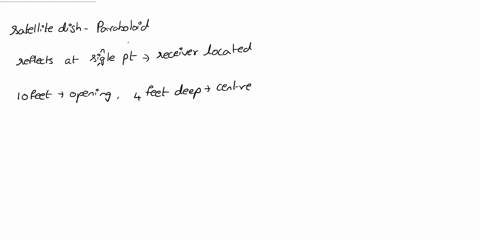 satellite dish - Paraboloid
reflects at single pt → receiver located
10 feet → opening, 4 feet deep → centre